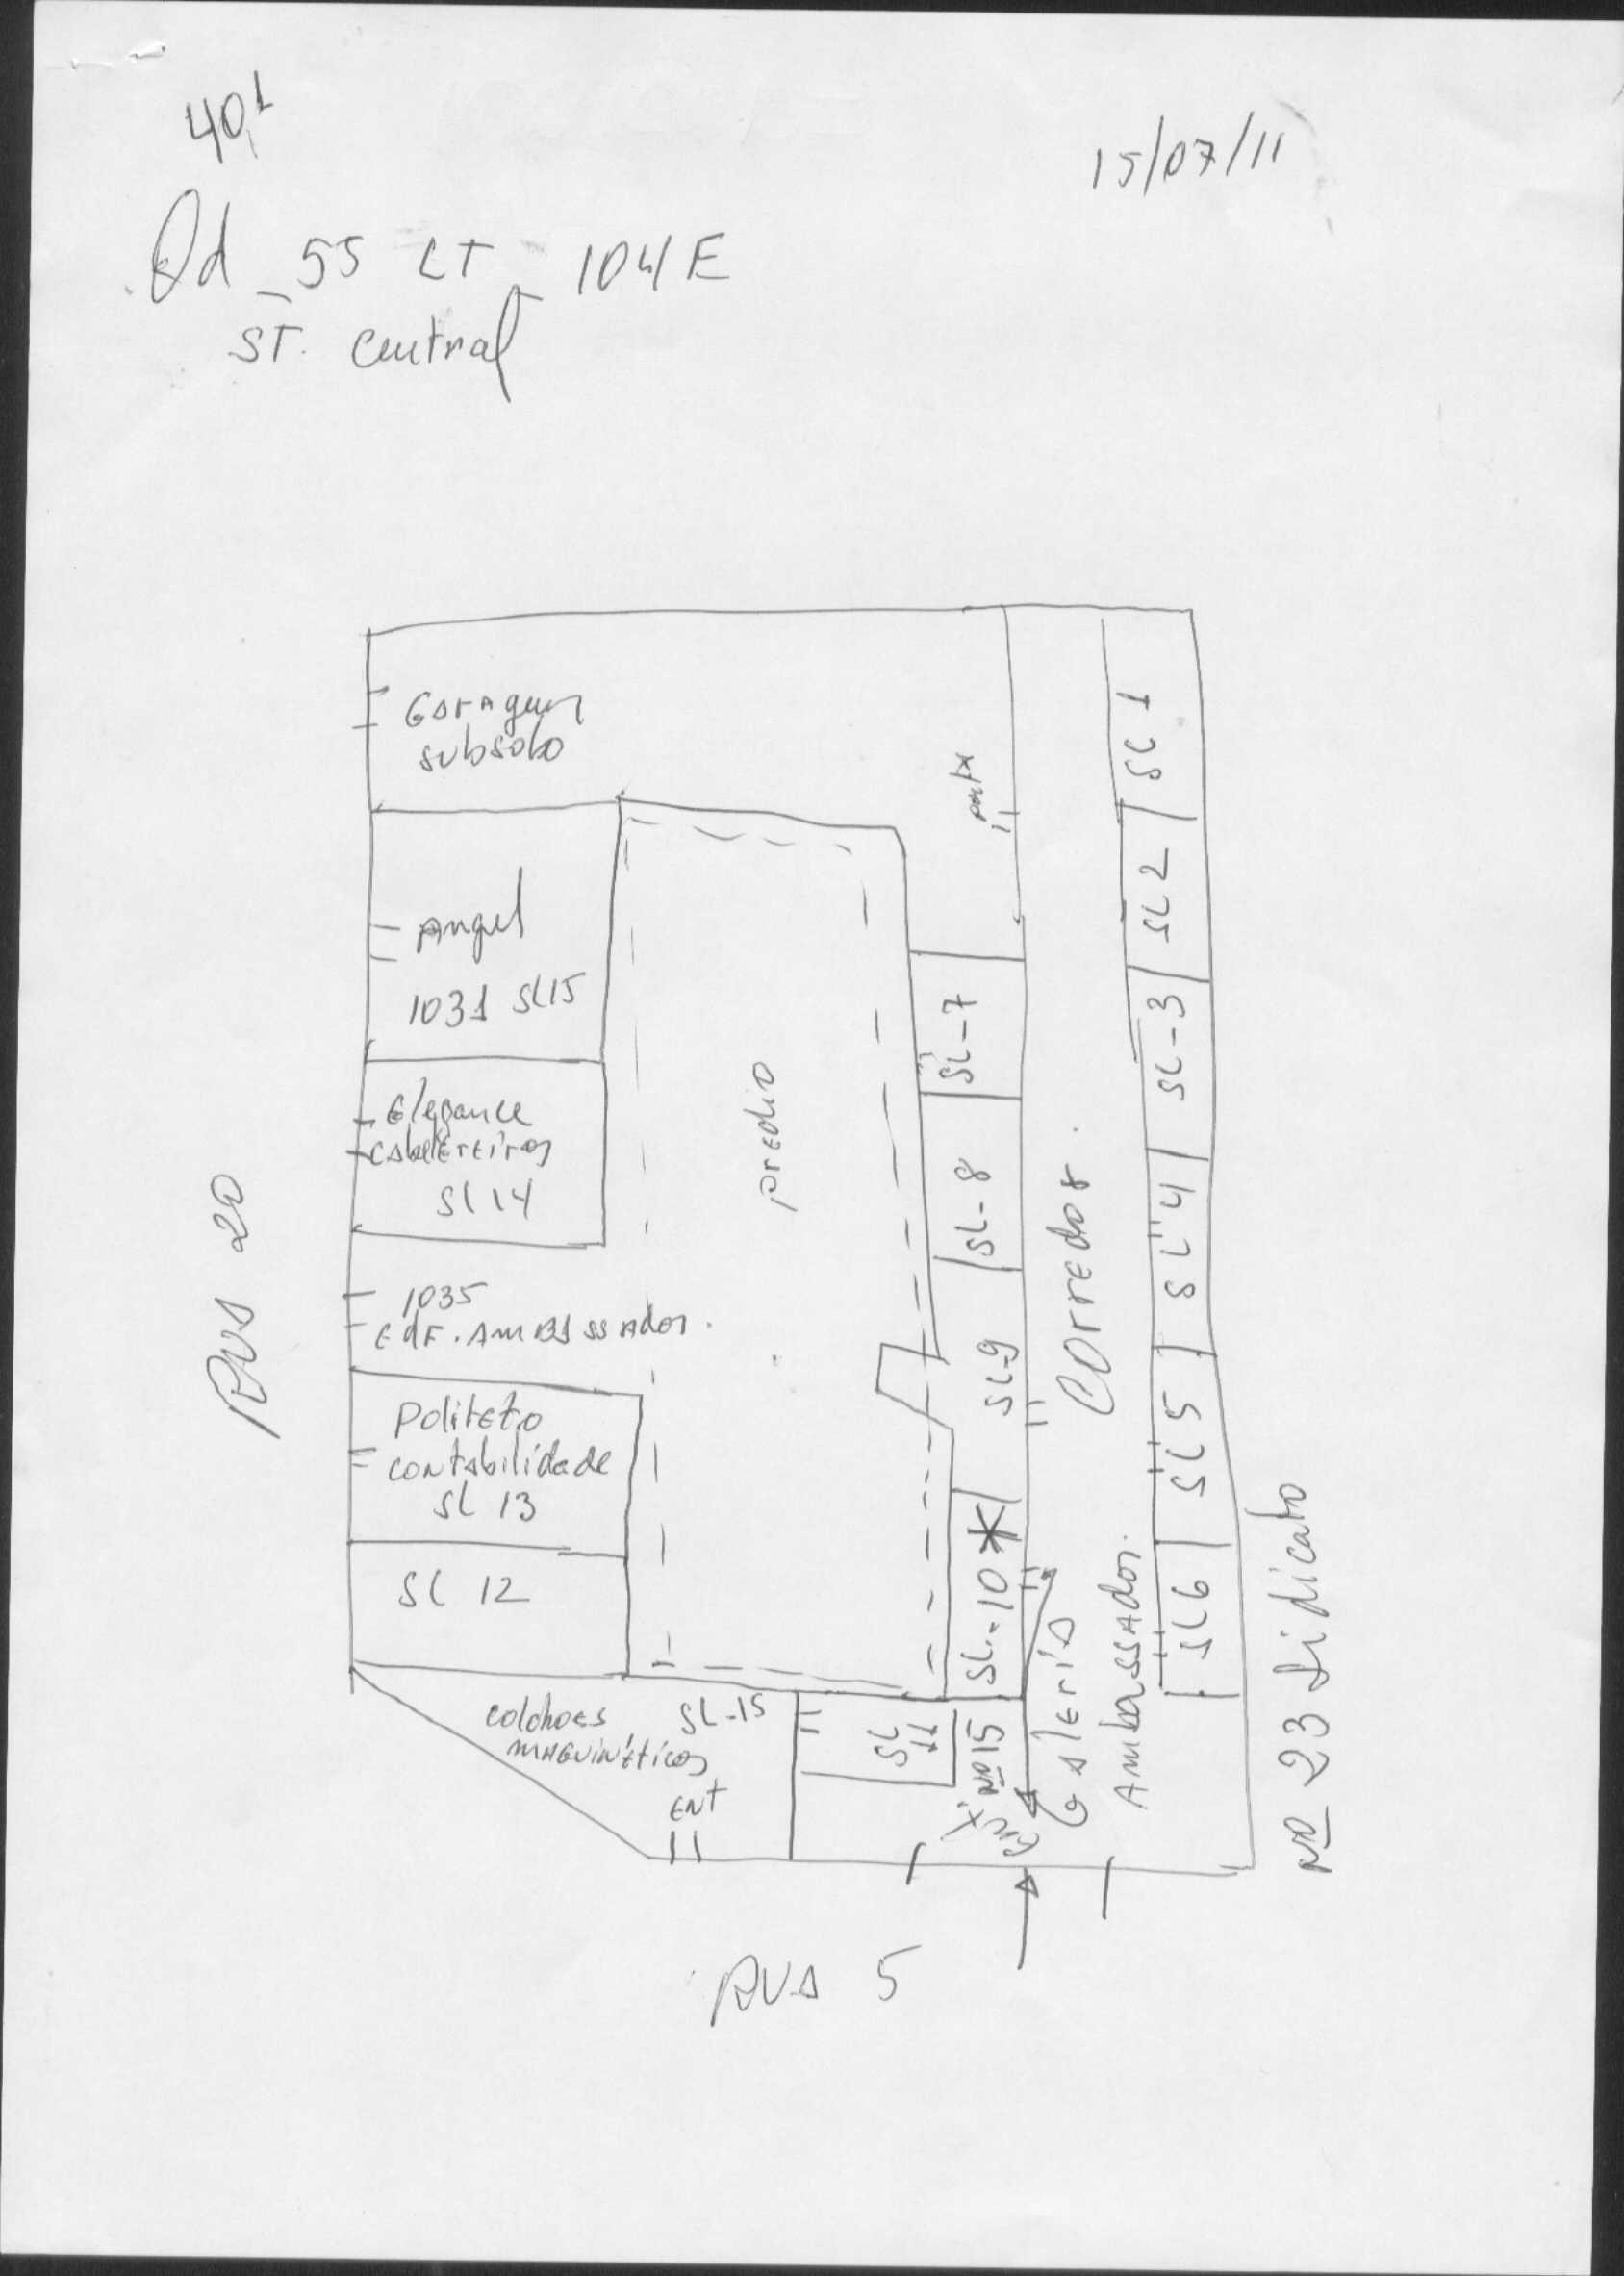 40,1
15/07/11
Qd _ 55 LT _ 104E
ST. Central
Garagem
subsolo
Porta
SL 1
Angel
1031 SL15
SL 2
SL-3
SL-7
Elegance
Cabelereiros
SL 14
predio
SL-8
SL 4
RUA 20
1035
EDF. AMBASSADOR.
SL-9
Corredor
SL 5
Politeto
contabilidade
SL 13
SL 12
SL-10 *
Galeria
Ambassador.
SL 6
Nº 23 Sidicato
colchoes
SL-15
maguinéticos
ENT
SL
11
Nº 15
RUA 5